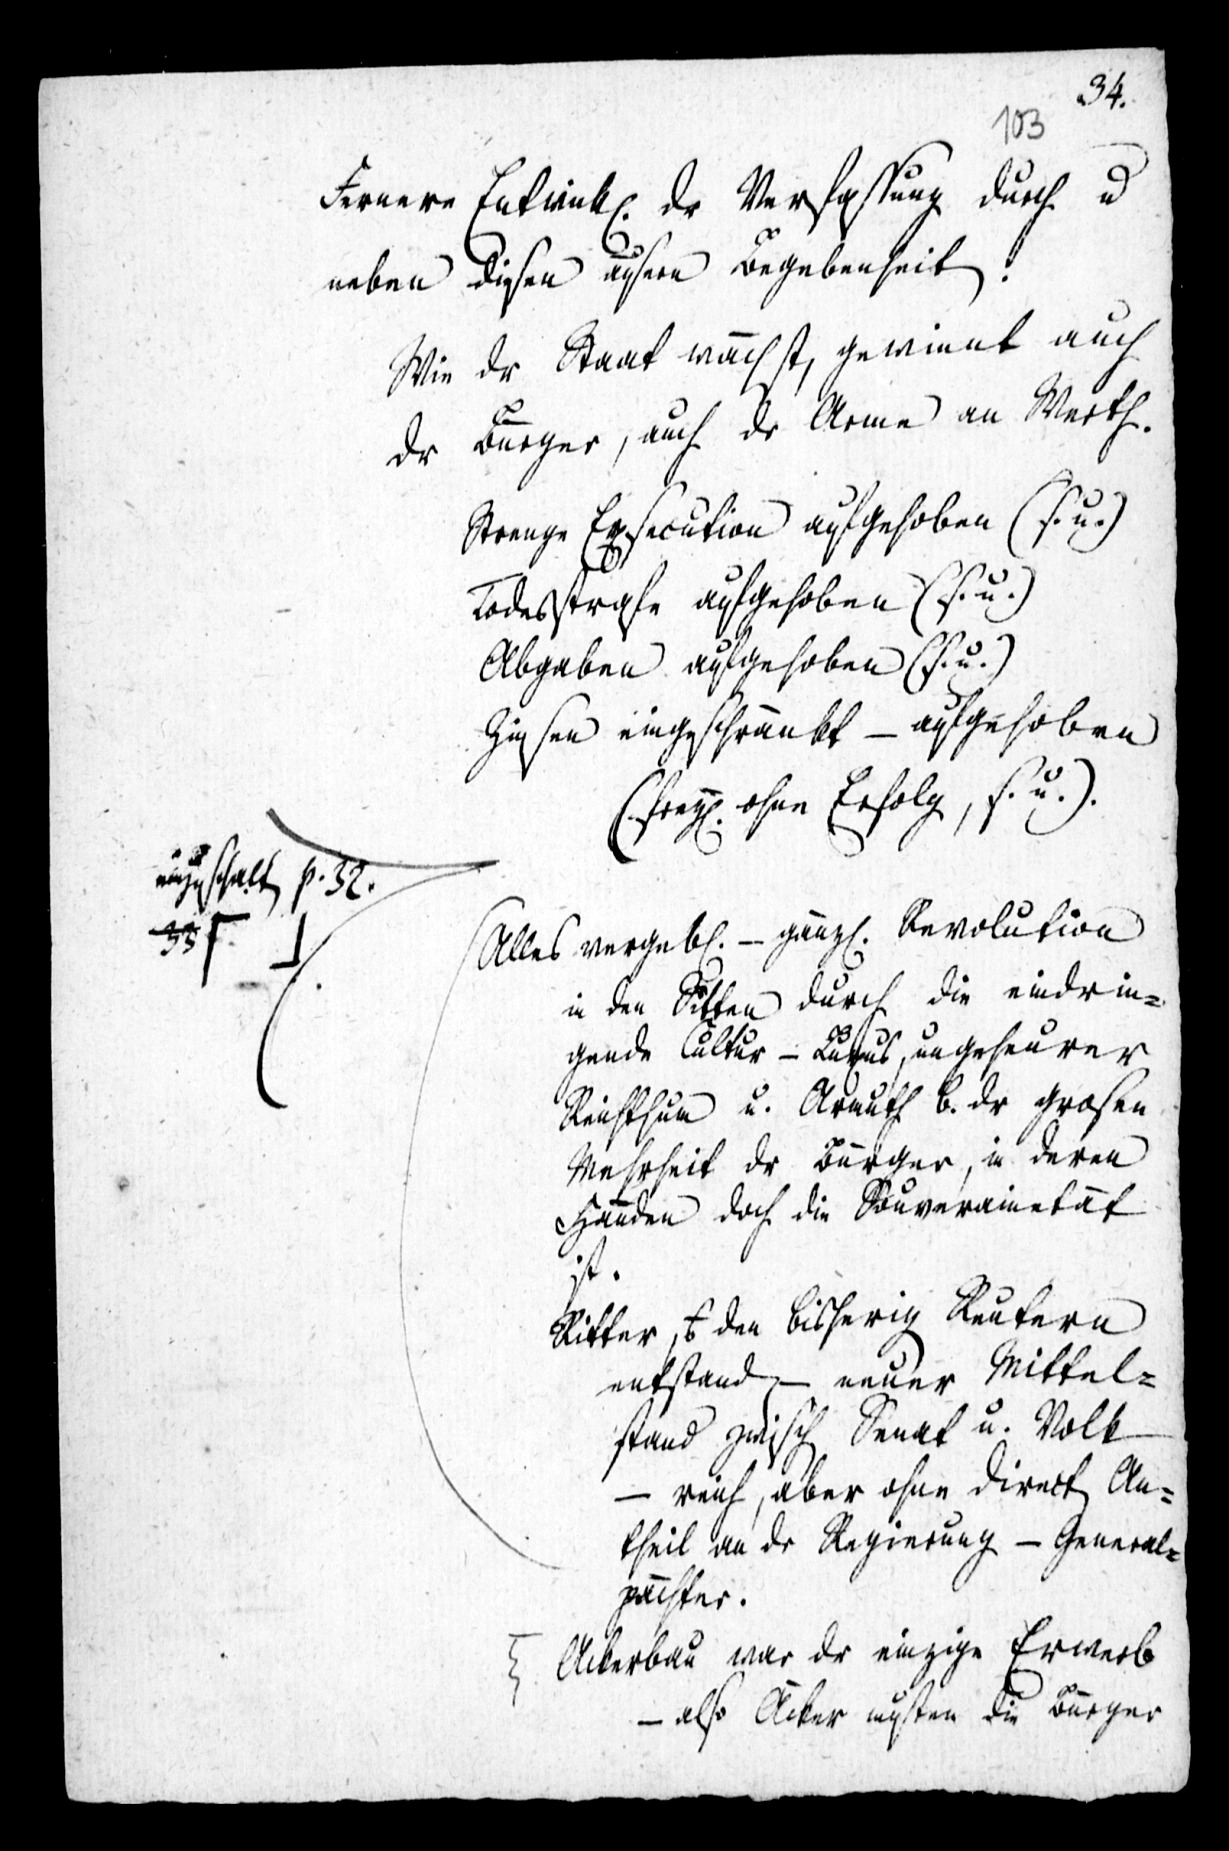 34.
103
Fernere Entwickl. dr Verfassung durch u
neben diesen äussern Begebenheit:
Wie dr Staat wächst, gewinnt auch
dr Bürger, auch dr Arme an Werth.
Strenge Exsecution aufgehoben (s. u.)
Todesstrafe aufgehoben (s. u.)
Abgaben aufgehoben (s. u.)
Zinsen eingeschränkt – aufgehoben
(freyl. ohne Erfolg, s. u.).
p. 32.
33
Alles vergebl. – gänzl. Revolution
in den Sitten durch die eindrin=
gende Cultur – Luxus, ungeheurer
Reichthum u. Armuth b. dr grosen
Mehrheit dr Bürger, in deren
Händen doch die Souverainetät
ist.
Ritter, den bisherig Reutern
entstand – neuer Mittel=
stand zwisch Senat u. Volk
– reich, aber ohne direct An=
theil an dr Regierung – General=
pächter.
Ackerbau war dr einzige Erwerb
– also Äcker mussten die Bürger